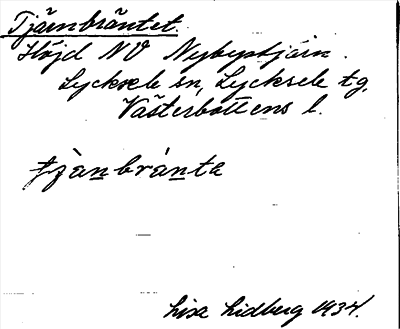 Tjärnbräntet.
Höjd NV Nybystjärn.
Lycksele sn, Lycksele tg,
Västerbottens l.
tjànbránta
Lisa Lidberg 1934.